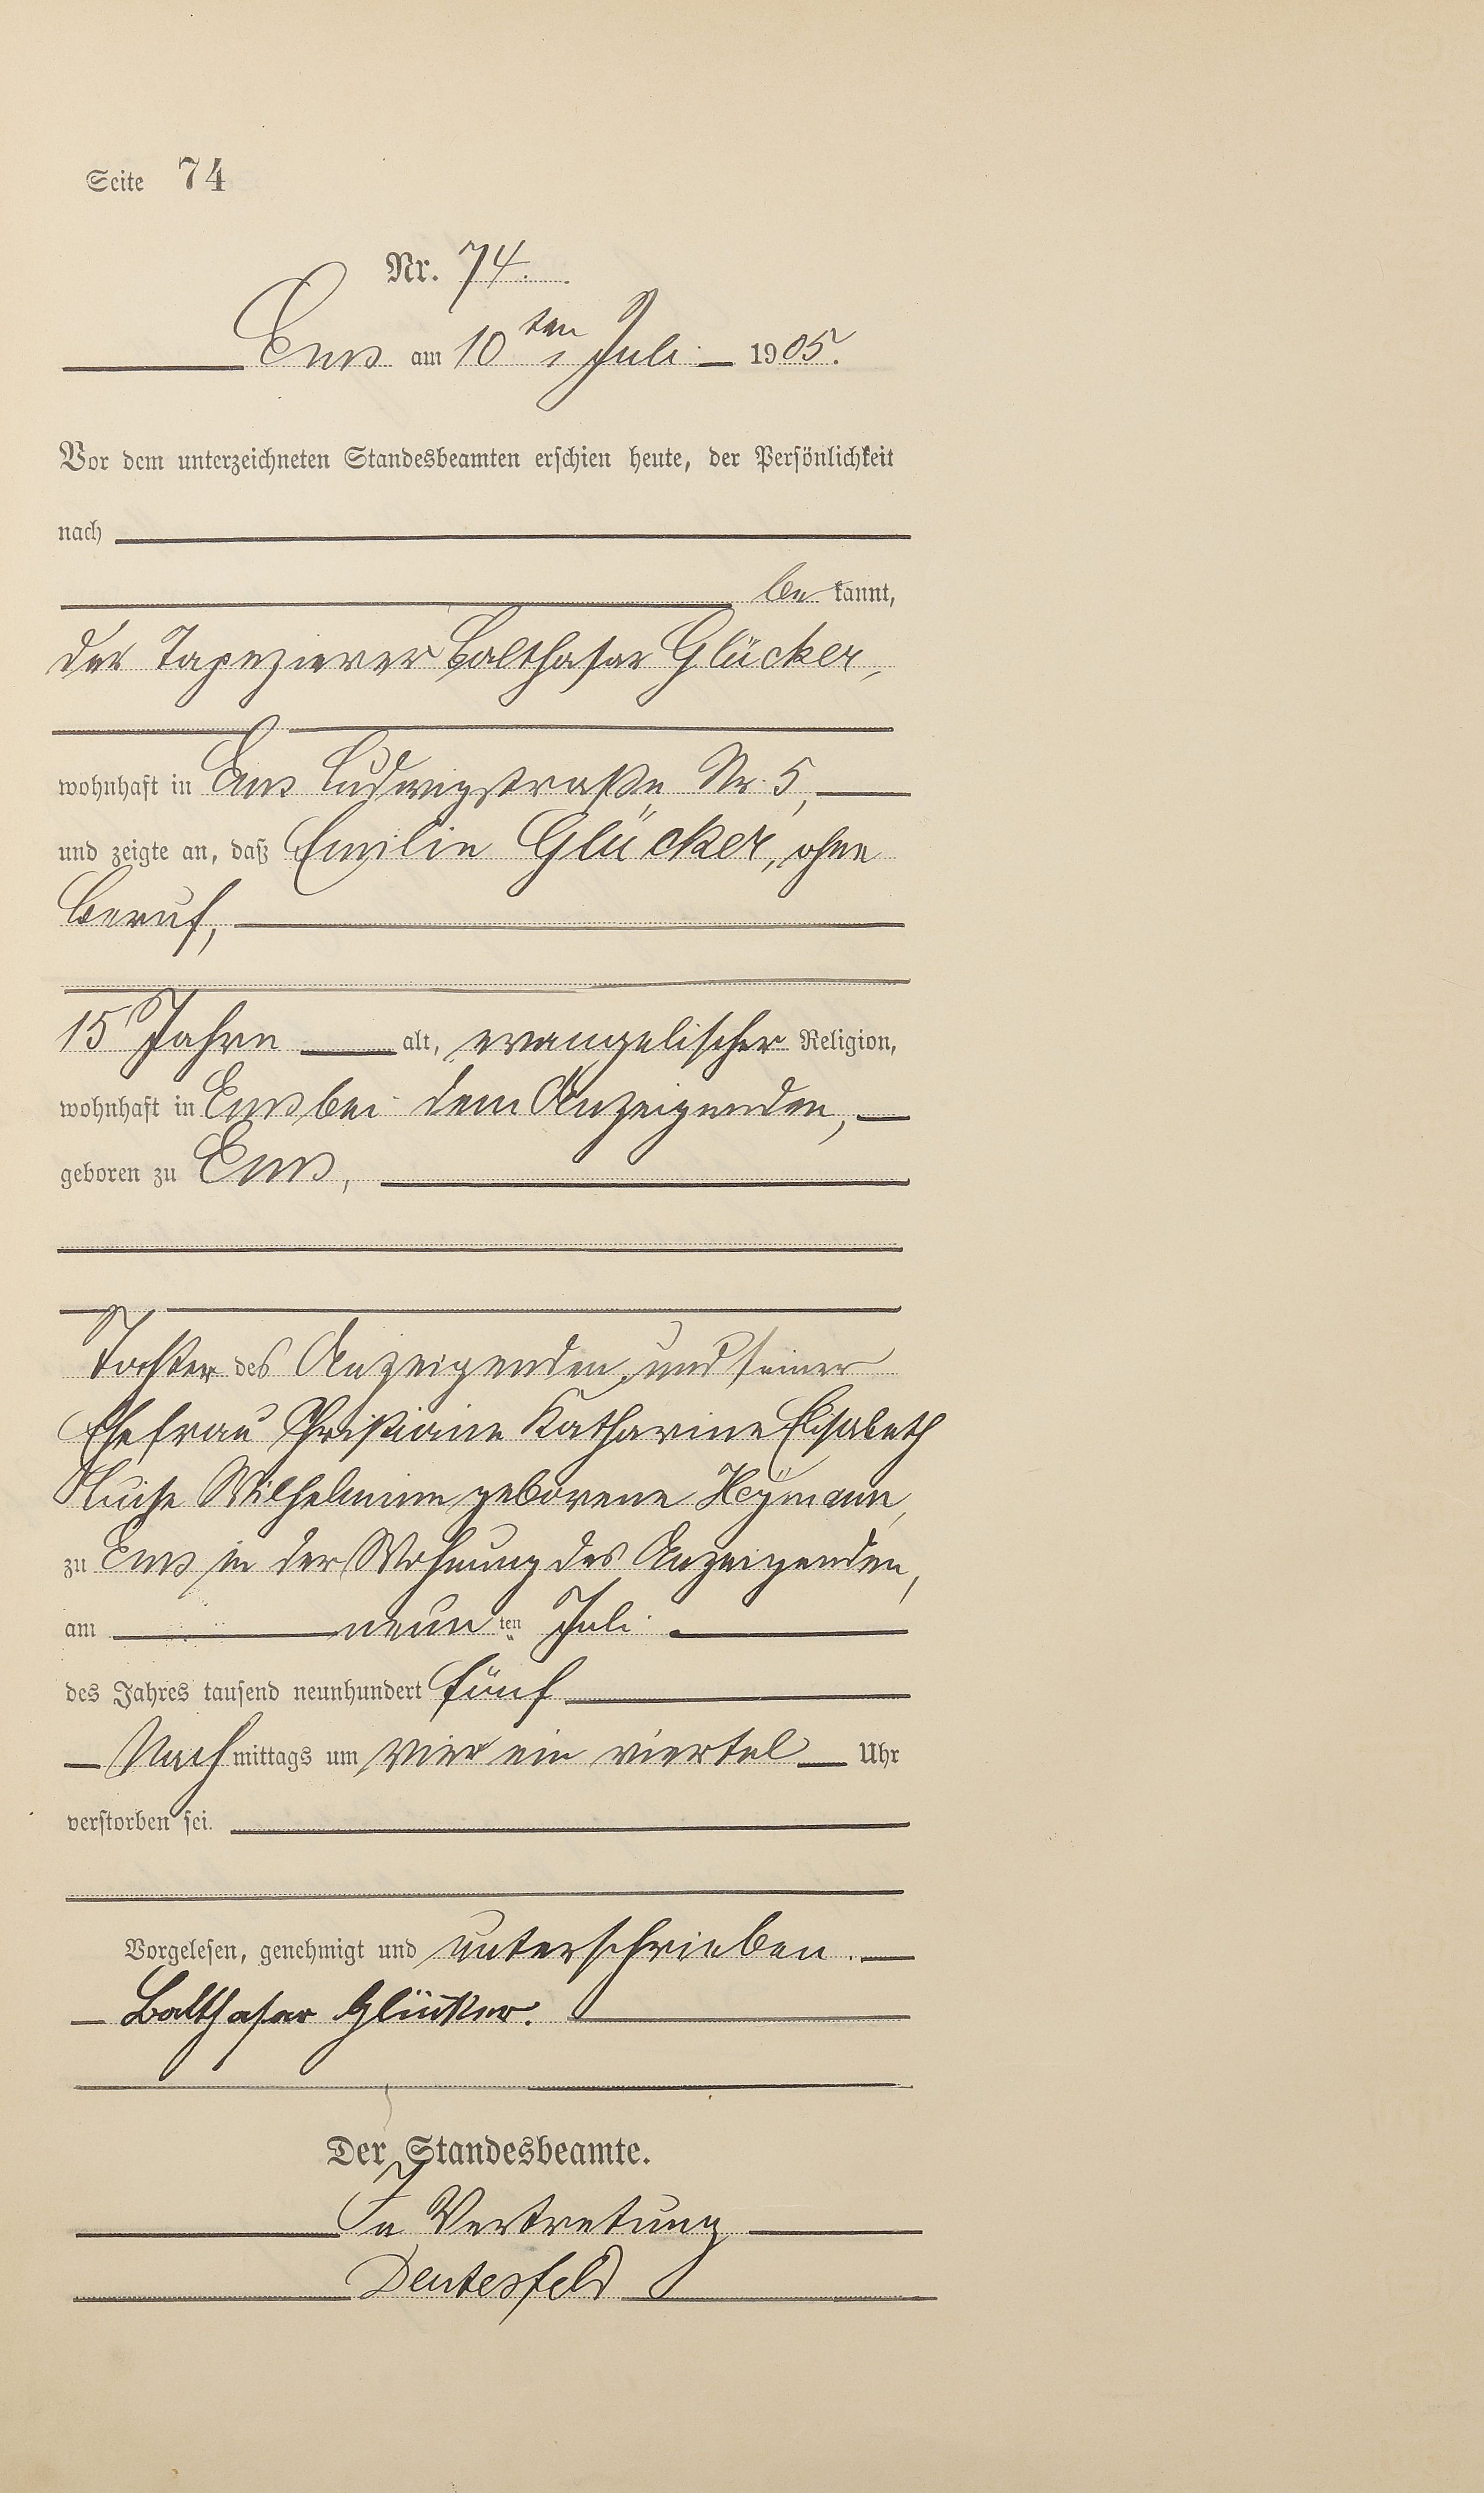 Seite 74
Nr. 74.
Ems am 10ten Juli 1905.
Vor dem unterzeichneten Standesbeamten erschien heute, der Persönlichkeit
nach
bekannt,
der Tapezierer Balthasar Glücker,
wohnhaft in Ems Ludwigstraße Nr. 5,
und zeigte an, daß Emilie Glücker, ohne
Beruf,
15 Jahre alt, evangelischer Religion,
wohnhaft in Ems bei dem Anzeigenden,
geboren zu Ems,
Tochter des Anzeigenden und seiner
Ehefrau Christiane Katharine Elisabeth
Luise Wilhelmine geborene Heymann,
zu Ems in der Wohnung des Anzeigenden,
am neunten Juli
des Jahres tausend neunhundert fünf
Nachmittags um vier ein viertel Uhr
verstorben sei.
Vorgelesen, genehmigt und unterschrieben.
Balthasar Glücker.
Der Standesbeamte.
In Vertretung